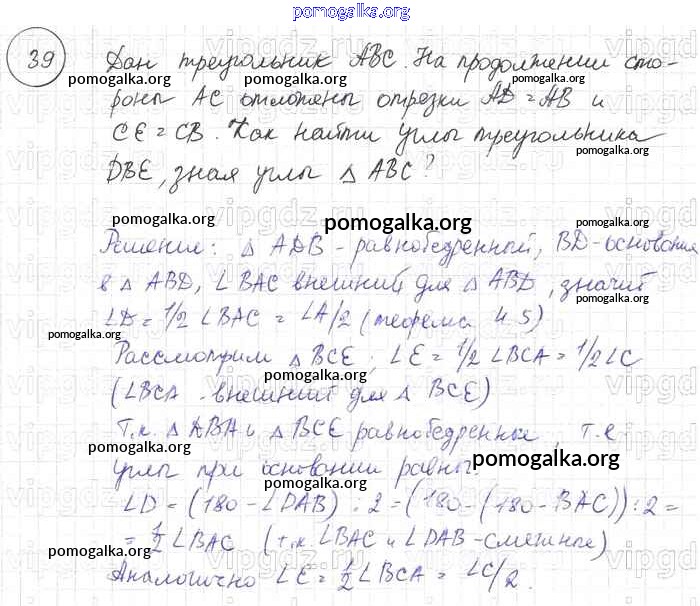 pomogalka.org
39 Дан треугольник ABC. На продолжении сто-
pomogalka.org pomogalka.org pomogalka.org
роны AC отложены отрезки AD = AB и
CE = CB. Как найти углы треугольника
pomogalka.org
DBE, зная углы △ ABC?
pomogalka.org pomogalka.org
Решение: △ ADB - равнобедренный, BD - основание
в △ ABD, ∠BAC внешний для △ ABD, значит
∠D = 1/2 ∠BAC = ∠A/2 (теорема 4.5)
pomogalka.org
Рассмотрим △ BCE, ∠E = 1/2 ∠BCA = 1/2 ∠C
pomogalka.org
(∠BCA - внешний для △ BCE)
Т.к. △ ABD и △ BCE равнобедренные, т.е.
pomogalka.org pomogalka.org
углы при основании равны.
pomogalka.org
∠D = (180 - ∠DAB) : 2 = (180 - (180 - BAC)) : 2 =
= 1/2 ∠BAC (т.к. ∠BAC и ∠DAB - смежные)
pomogalka.org pomogalka.org
Аналогично ∠E = 1/2 ∠BCA = ∠C/2.
pomogalka.org pomogalka.org